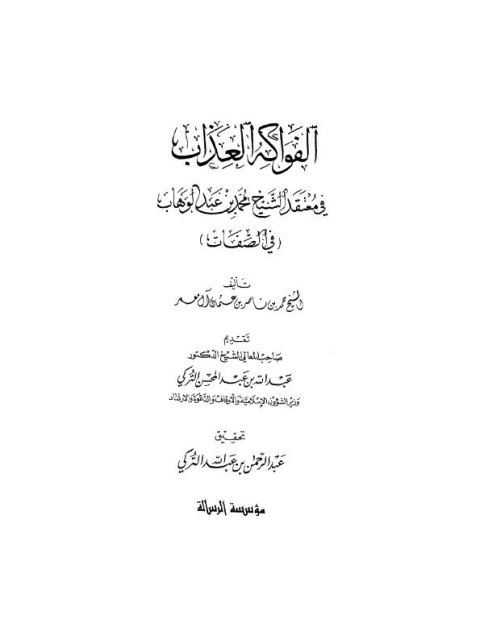 الفواكه العذاب
في معتقد الشيخ محمد بن عبد الوهاب
(في الصفات)
تأليف
الشيخ حمد بن ناصر بن عثمان آل معمر
تقديم
صاحب المعالي الشيخ الدكتور
عبد الله بن عبد المحسن التركي
وزير الشؤون الإسلامية والأوقاف والدعوة والإرشاد
تحقيق
عبد الرحمن بن عبد الله التركي
مؤسسة الرسالة